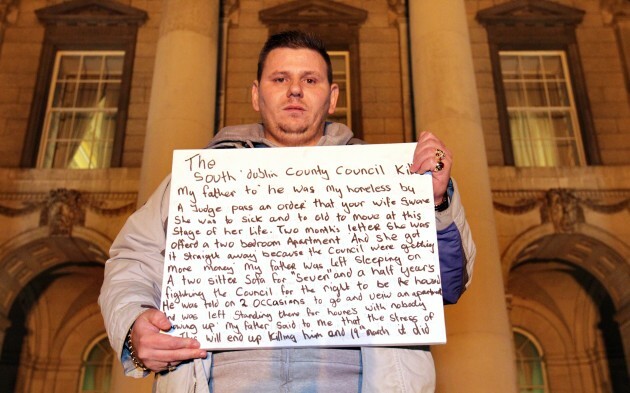 The
South Dublin County Council
My father to he was my homeless by
A Judge pass an order that your wife Swore
She was to sick and to old to move at this
Stage of her Life. Two month's letter She was
offerd a two bedroom Apartment And She got
it straight away because the Council were getting
more money My father was left Sleeping on
A two sitter Sofa for "Seven" and a half year's
fighting the Council for the right to be Re housed
He was told on 2 Occasions to go and veiw an apartment
and was left standing there for houre's with nobody
up my father Said to me that the stress of
will end up Killing him and 19th march it did